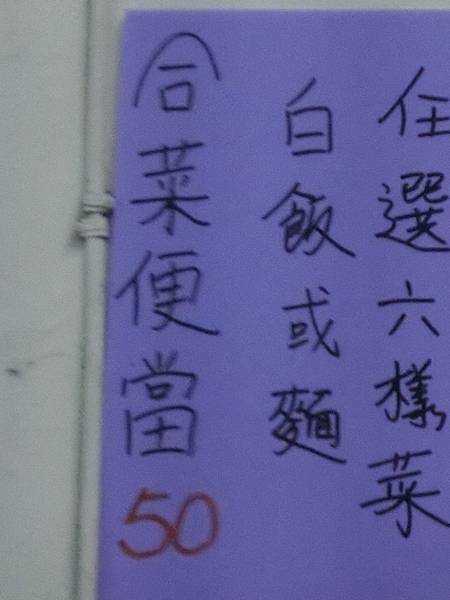 任選六樣菜
白飯或麵
合菜便當50